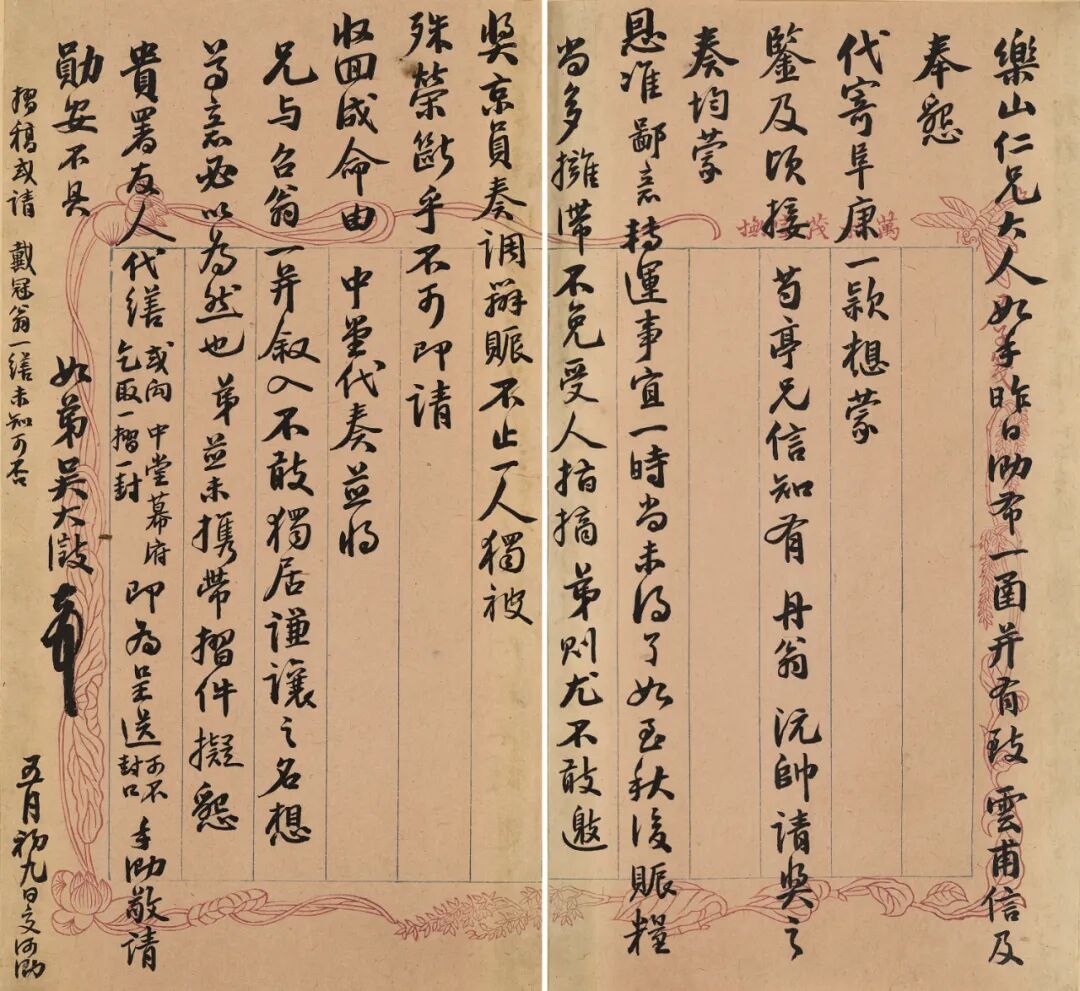 樂山仁兄大人如手昨日泐布一函并有致雲甫信及
奉懇
代寄阜康一款想蒙
鑒及頃接芍亭兄信知有丹翁沅帥請奬之
奏均蒙
恩准鄙意轉運事宜一時尚未得了如至秋後賑糧
尚多擁滯不免受人指摘弟則尤不敢邀
奬京員奏調辦賑不止一人獨被
殊榮斷乎不可即請
收回成命由中堂代奏並將
兄与召翁一并叙入不敢獨居謙讓之名想
尊意必以為然也弟並未携帶摺件擬懇
貴署友人代繕或向中堂幕府乞取一摺一封即為呈送可不封口手泐敬請
勛安不具
如弟吳大澂
五月初九日交河泐
摺稿或請戴冠翁一繕未知可否